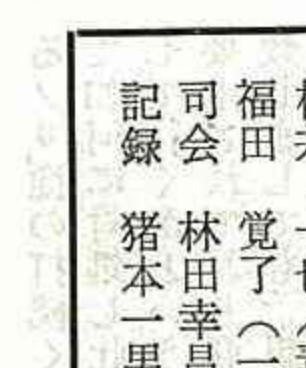 福田 覚了（一
司会 林田幸昌
記録 猪本一男